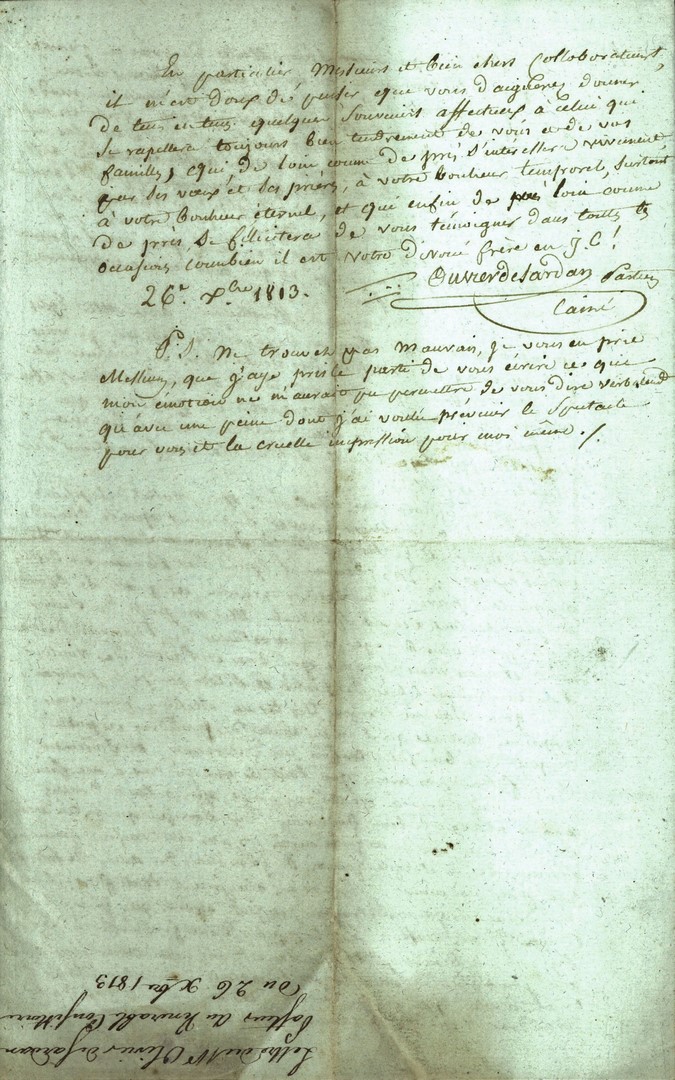 En particulier, Messieurs et bien chers Collaborateurs,
il m'est doux de penser que vous daignerez donner
de tems en tems quelques souvenirs affectueux à celui qui
se rapellera toujours bien tendrement de vous et de vos
familles, qui, de loin comme de près s'interessera vivement
par ses vœux et ses prières, à votre bonheur temporel, surtout
à votre bonheur éternel, et qui enfin de loin comme
de près se félicitera de vous témoigner dans toutes les
occasions combien il est votre dévoué frère en J. C!
26.e Xbre 1813. Olivier de Sardan Pasteur
l'ainé
P. S. Ne trouvez pas mauvais, je vous en prie
Messieurs, que j'aye pris le parti de vous écrire ce que
mon émotion ne m'aurait pu permettre de vous dire verbalement
qu'avec une peine dont j'ai voulu prévenir le spectacle
pour vous et la cruelle impression pour moi même ./.
Lettre de Mr Olivier de Sardan
Pasteur au Vénérable Consistoire
du 26 Xbre 1813